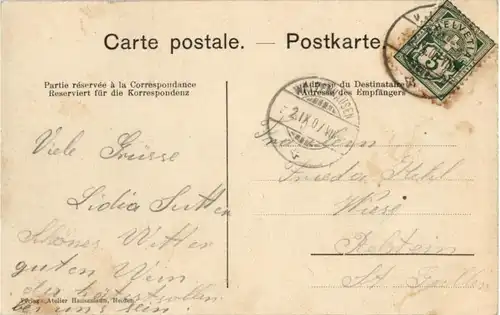 Carte postale. — Postkarte.
Partie réservée à la Correspondance
Reserviert für die Korrespondenz
Adresse du Destinataire
Adresse des Empfängers
HELVETIA
5
Viele Grüsse
Lidia Sutter
Schönes Wetter
guten Wein
bei uns sein.
Frieda
Wiese
St. Gallen
Verlag Atelier Hausamann, Heiden